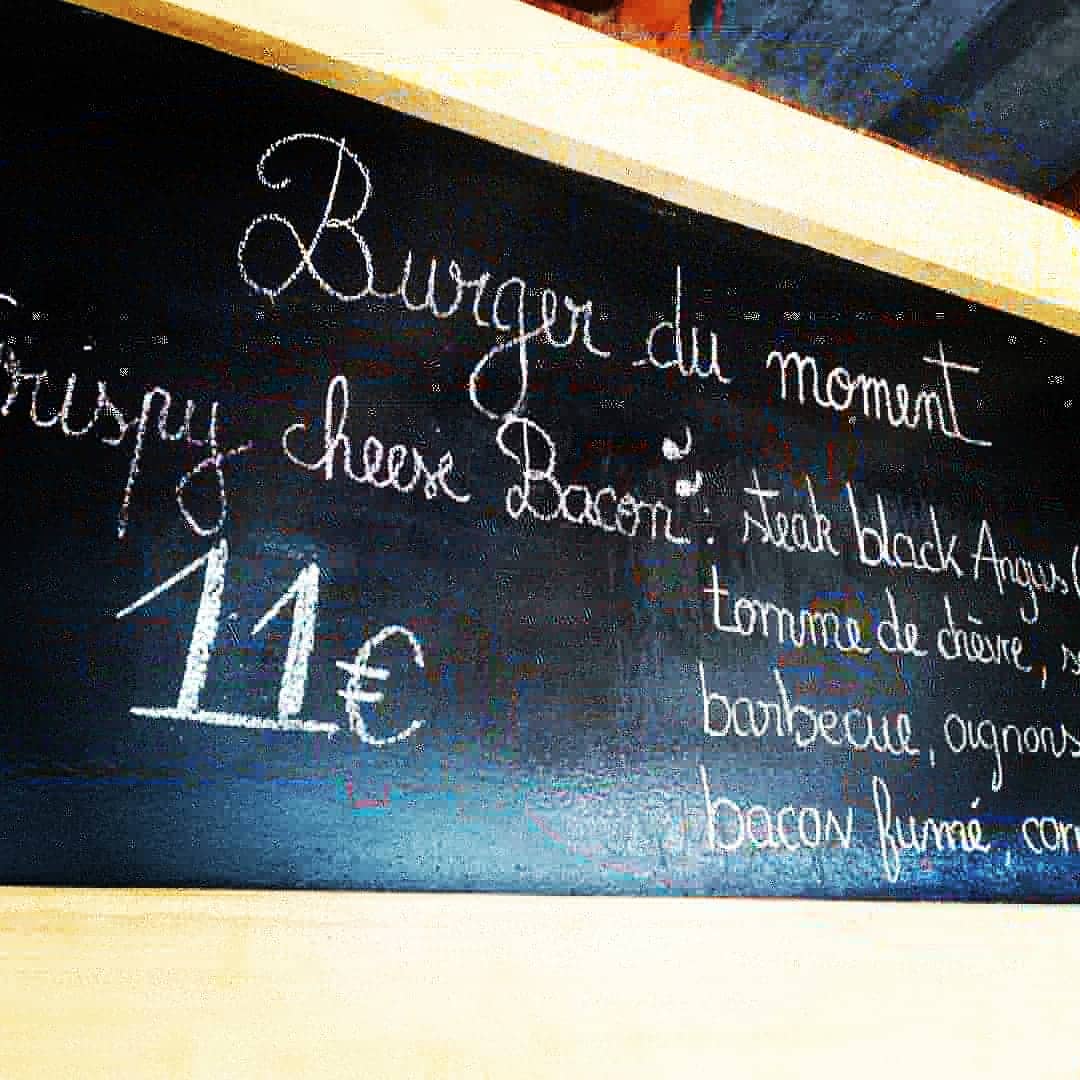 Burger du moment
Crispy cheese Bacon" : steak black Angus (
11€
tomme de chèvre, s
barbecue, oignons
bacon fumé, corn